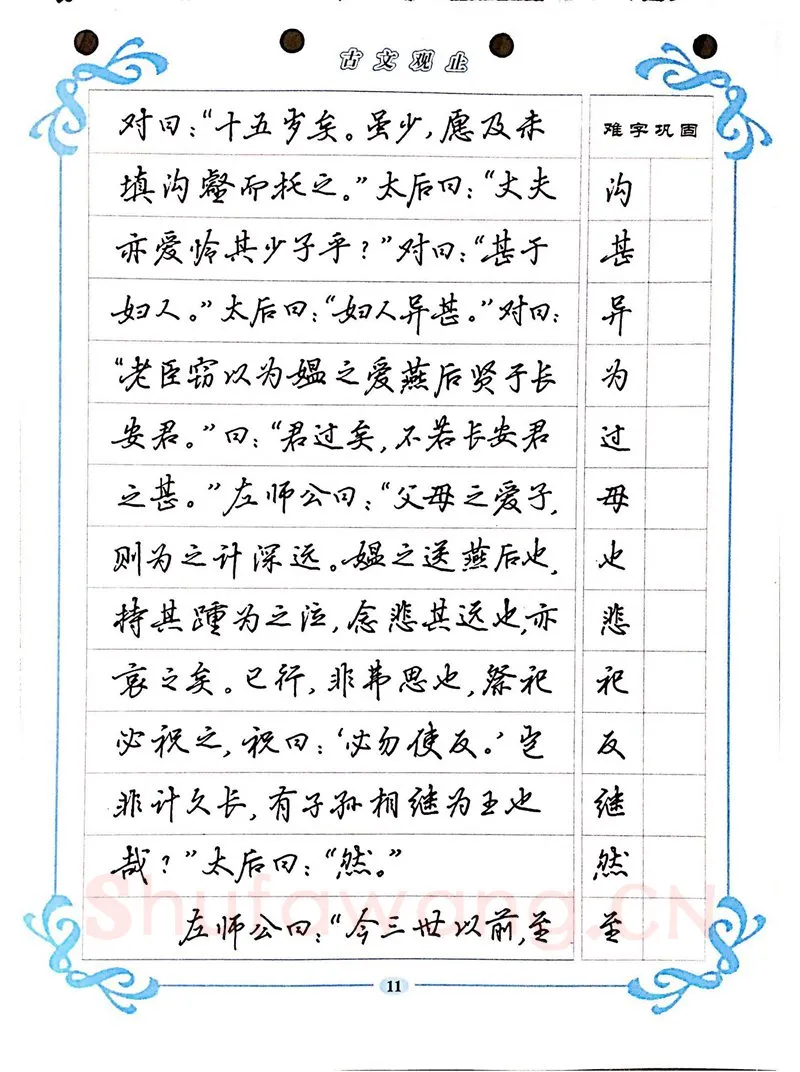 古文观止
对曰：“十五岁矣。虽少，愿及未
填沟壑而托之。”太后曰：“丈夫
亦爱怜其少子乎？”对曰：“甚于
妇人。”太后曰：“妇人异甚。”对曰：
“老臣窃以为媪之爱燕后贤于长
安君。”曰：“君过矣，不若长安君
之甚。”左师公曰：“父母之爱子，
则为之计深远。媪之送燕后也，
持其踵为之泣，念悲其远也，亦
哀之矣。已行，非弗思也，祭祀
必祝之，祝曰：‘必勿使反。’岂
非计久长，有子孙相继为王也
哉？”太后曰：“然。”
左师公曰：“今三世以前，至
难字巩固
沟
甚
异
为
过
母
也
悲
祀
反
继
然
至
Shufawang.CN
11